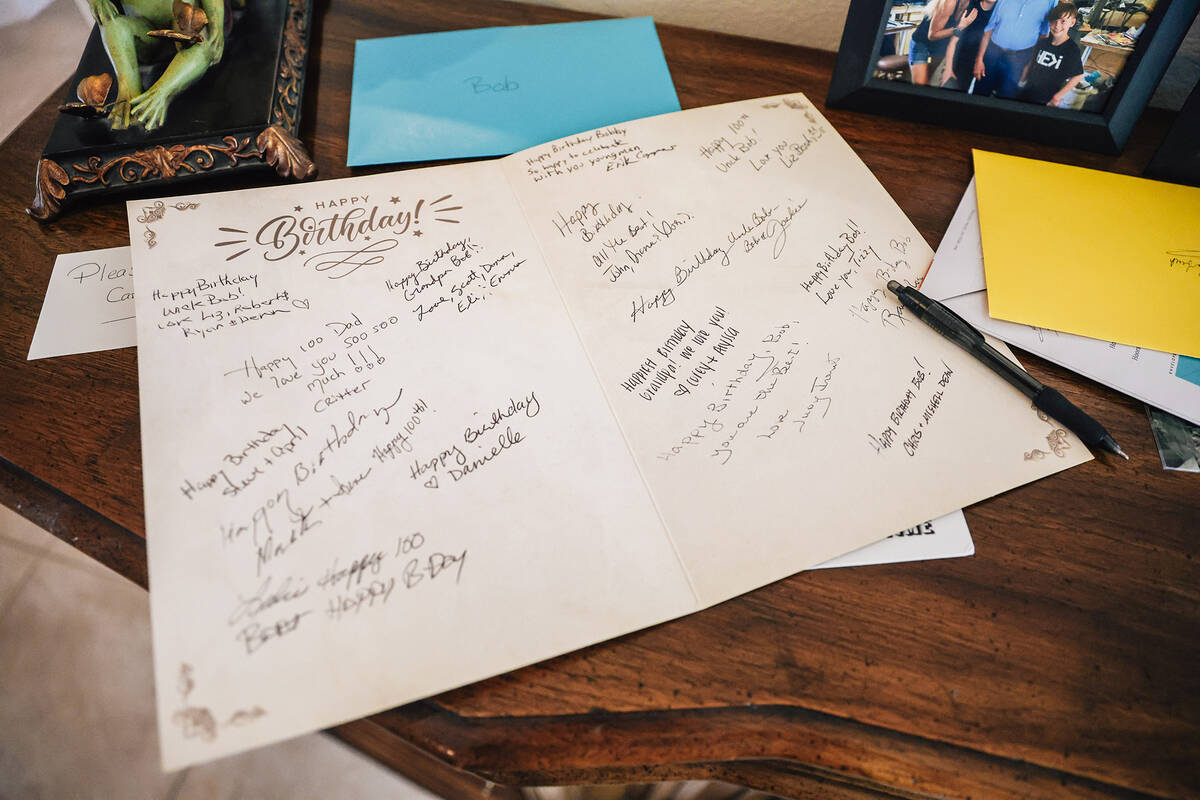 Bob
HEKi
Please
HAPPY
Birthday!
Happy Birthday
Uncle Bob!
Love Liz, Robert,
Ryan & Devin ♡
Happy Birthday,
Grandpa Bob!!
Love Scott, Dana,
Eli, & Emma
Happy 100 Dad
We love you soo soo
much!!!
Critter
Happy Birthday
Steve + April
Happy Birthday
Happy 100th!
Happy Birthday
♡ Danielle
Happy 100
Bert Happy B-Day
Happy Birthday Bobby
So happy to celebrate
with you young man
Erik
Happy 100th
Uncle Bob!
Love you
Happy
Birthday
All the Best!
John, Irena & Dan :).
Happy Birthday Uncle Bob
Jackie
Happiest Birthday
Grandpa! We love you!
♡ Corey + Alyssa
Happy Birthday Bob!
Love you, Tizzy
Happy Birthday, Bob!
You are the Best!
Love
Judy
Happy Bday Bro
Happy Birthday Bob!
Chris + Mishell Dew